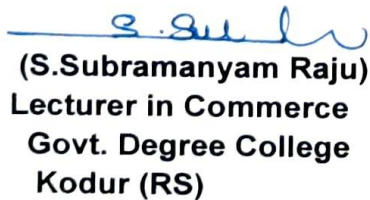 (S.Subramanyam Raju)
Lecturer in Commerce
Govt. Degree College
Kodur (RS)